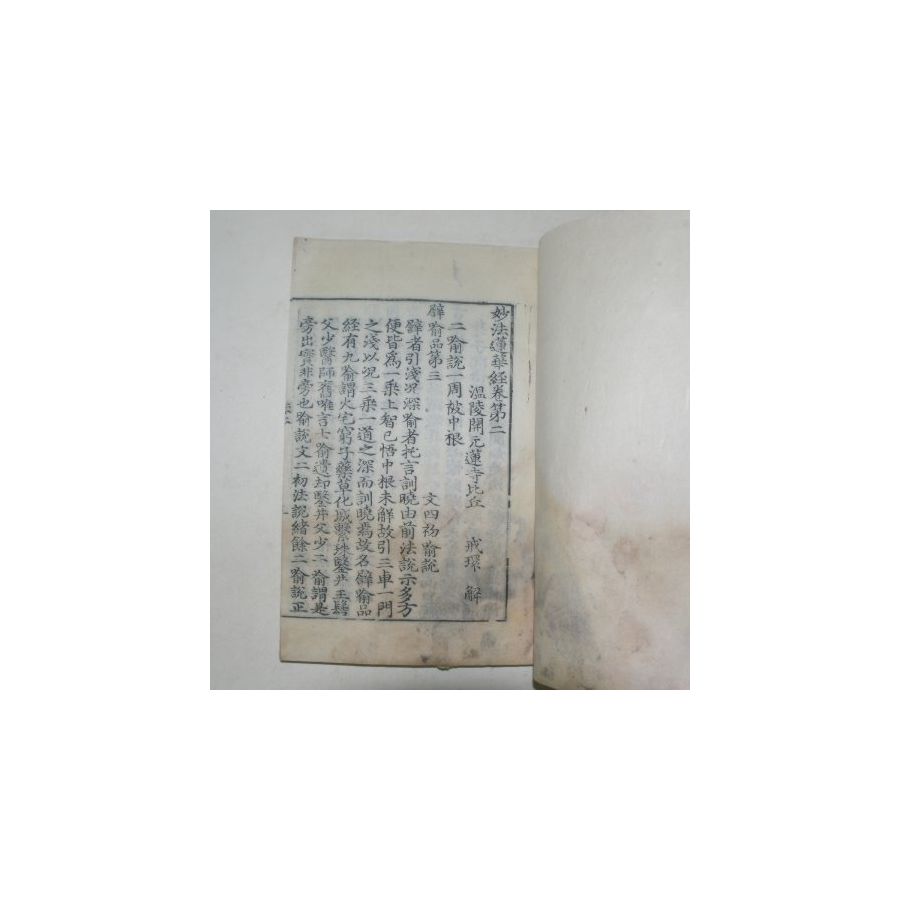 妙法蓮華経卷第二
温陵開元蓮寺比丘 戒環 解
二喻說一周被中根
譬喻品第三 文四初喻說
譬者引淺况深喻者托言訓曉由前法說示多方
便皆爲一乘上智已悟中根未解故引三車一門
之淺以况三乘一道之深而訓曉焉故名譬喻品
経有九喻謂火宅窮子藥草化城繫珠鑿井王髻
父少醫師舊唯言七喻遺却鑿井父少二喻謂是
旁出實非旁也喻說文二初法說緒餘二喻說正